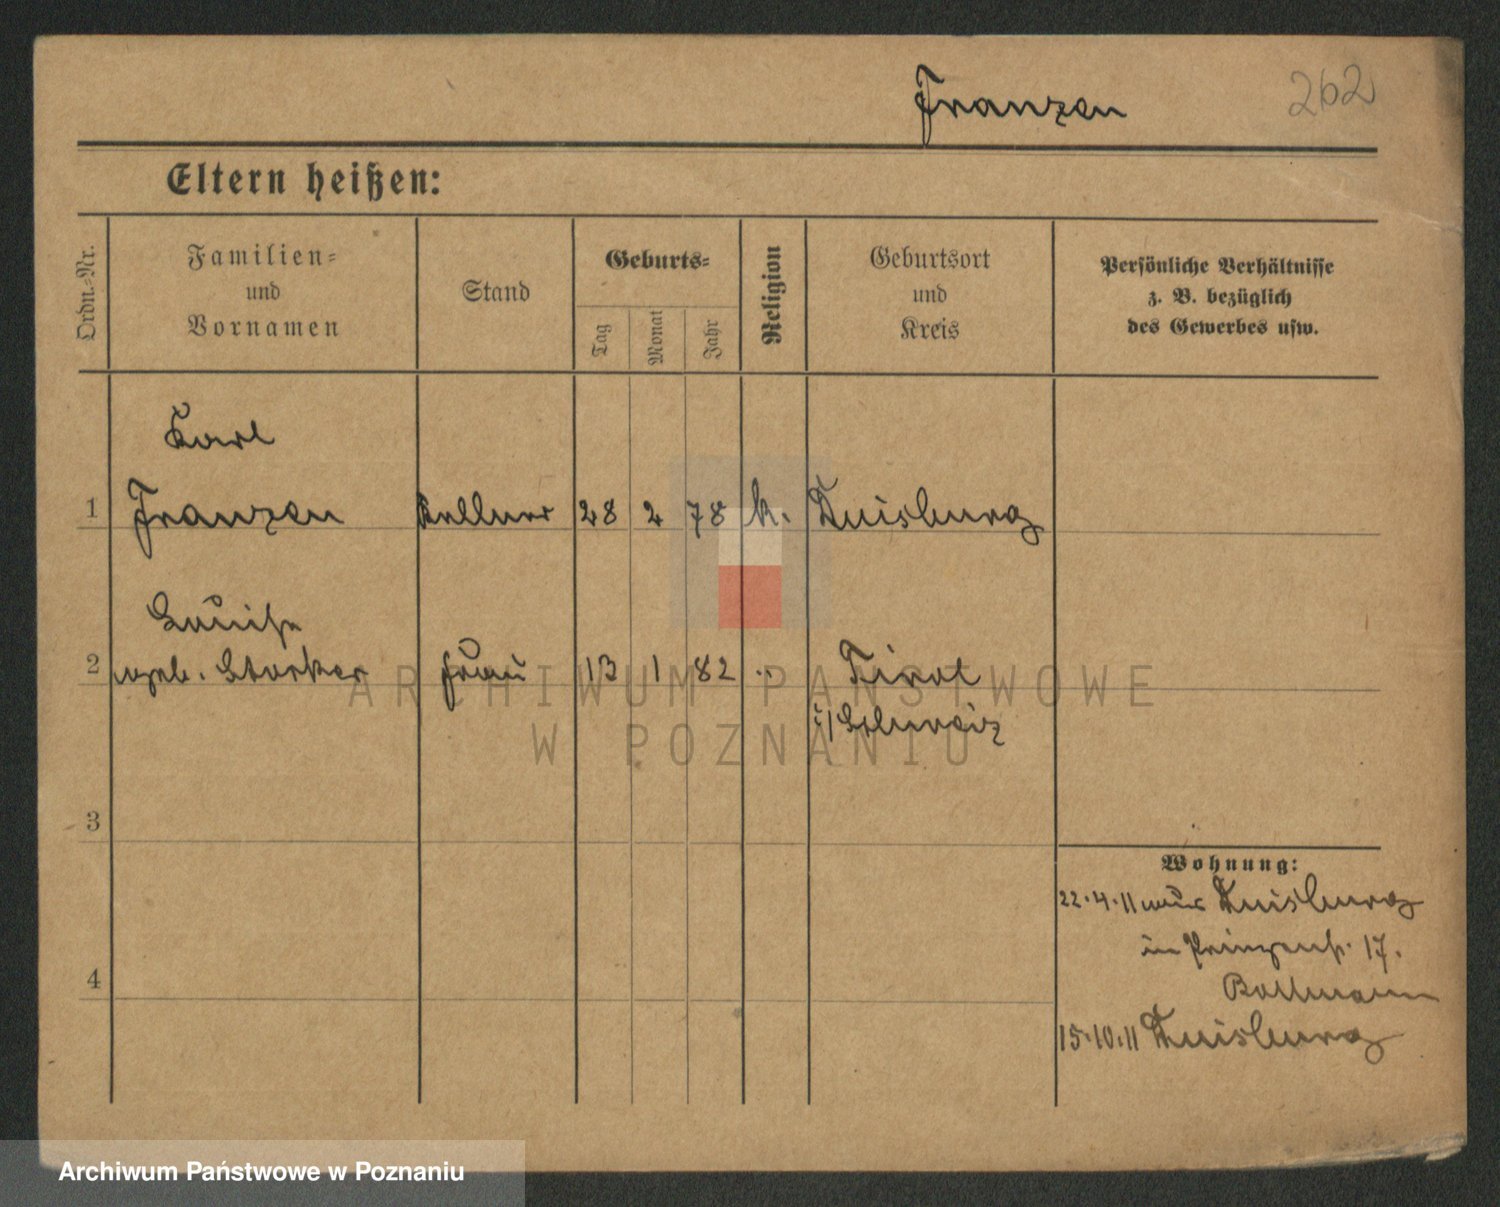 Franzen 262
Eltern heißen:
Ordn.-Nr.
Familien-
und
Vornamen
Stand
Geburts-
Tag
Monat
Jahr
Religion
Geburtsort
und
Kreis
Persönliche Verhältnisse
z. B. bezüglich
des Gewerbes usw.
Karl
1 Franzen Kellner 28 2 78 k. Duisburg
Louise
2 geb. Storker Frau 13 1 82 " Tirol
i/ Schweiz
3
4
Wohnung:
22.4.11 aus Duisburg
in Prinzenst. 17.
15.10.11 Duisburg
ARCHIWUM PAŃSTWOWE
W POZNANIU
Archiwum Państwowe w Poznaniu